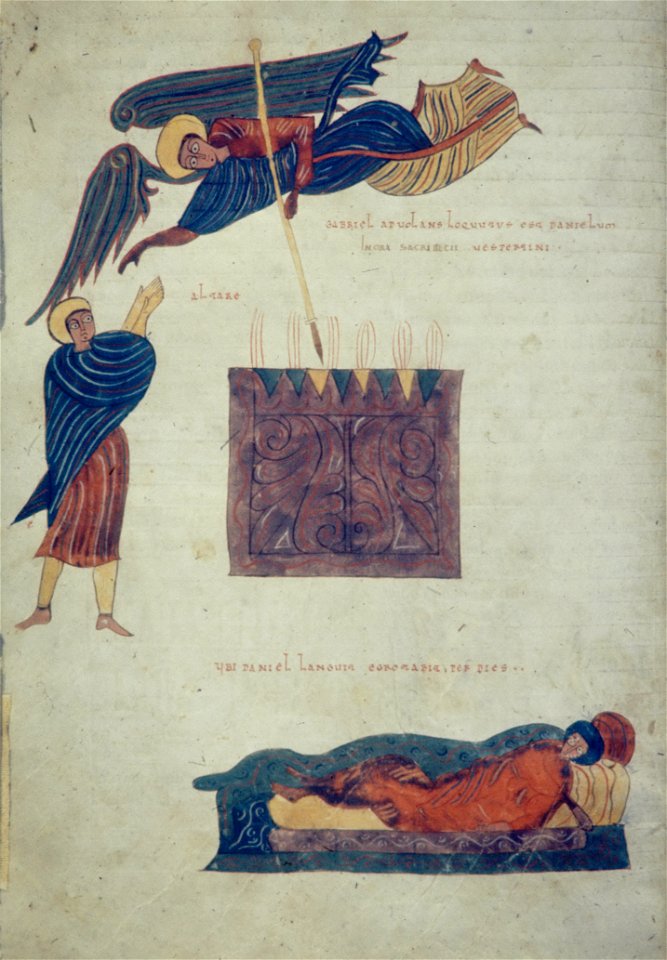 GABRIEL ADUOLANS LOQUUTUS EST DANIELUM
IN ORA SACRIFICII UESPERTINI ·
ALTARE
UBI DANIEL LANGUIT EGROTABIT PER DIES ··